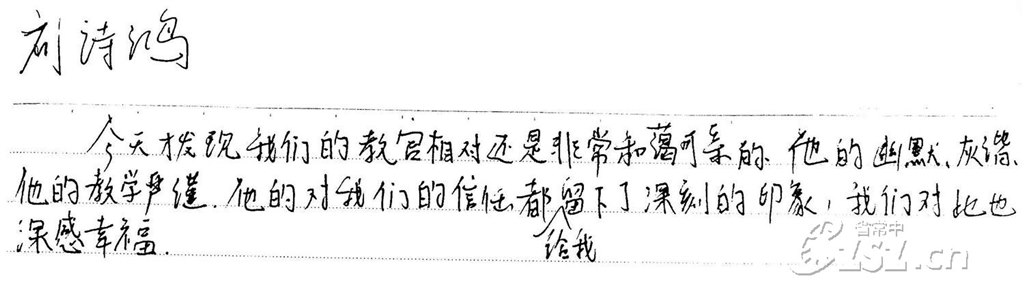 刘诗鸿
今天才发现我们的教官相对还是非常和蔼可亲的.他的幽默、灰谐、
他的教学严谨.他的对我们的信任都给我留下了深刻的印象,我们对此也
深感幸福.
省常中
CZSZ.cn